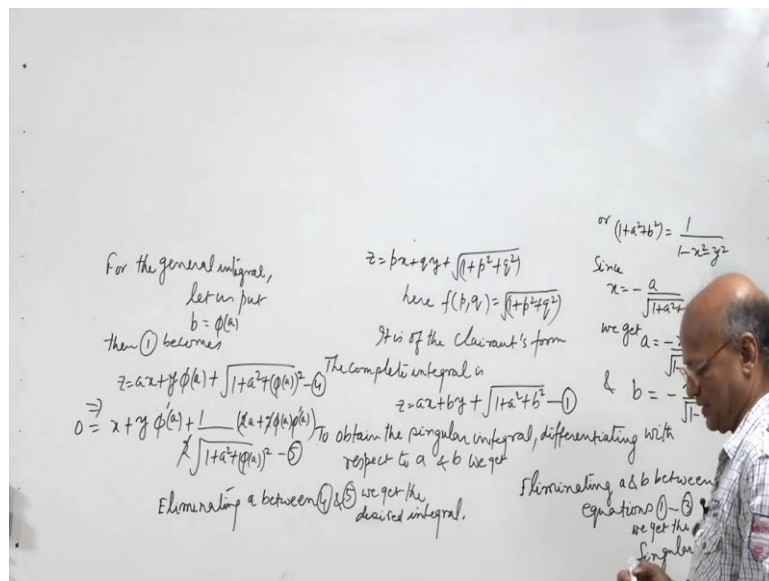 For the general integral,
let us put
b = φ(a)
then ① becomes
z = ax + y φ(a) + √(1+a²+(φ(a))²) – ④
⇒
0 = x + y φ(a) + 1/(2√(1+a²+(φ(a))²)) (2a + 2φ(a)φ'(a)) – ⑤
Eliminating a between ④ & ⑤ we get the
desired integral.
z = px + qy + √(1+p²+q²)
here f(p,q) = √(1+p²+q²)
It is of the Clairaut's form
The complete integral is
z = ax + by + √(1+a²+b²) – ①
To obtain the singular integral, differentiating with
respect to a & b we get
or (1+a²+b²) = 1/(1-x²-y²)
Since
x = - a/√(1+a²+
we get a = -
√1-
& b = -
√1-
Eliminating a & b between
equations ① – ③
we get the
singular